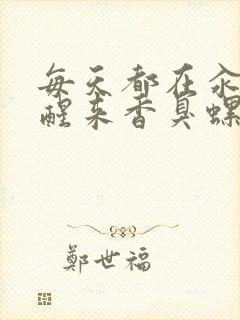 每天都在氽
醒来香臭螺
鄭世福